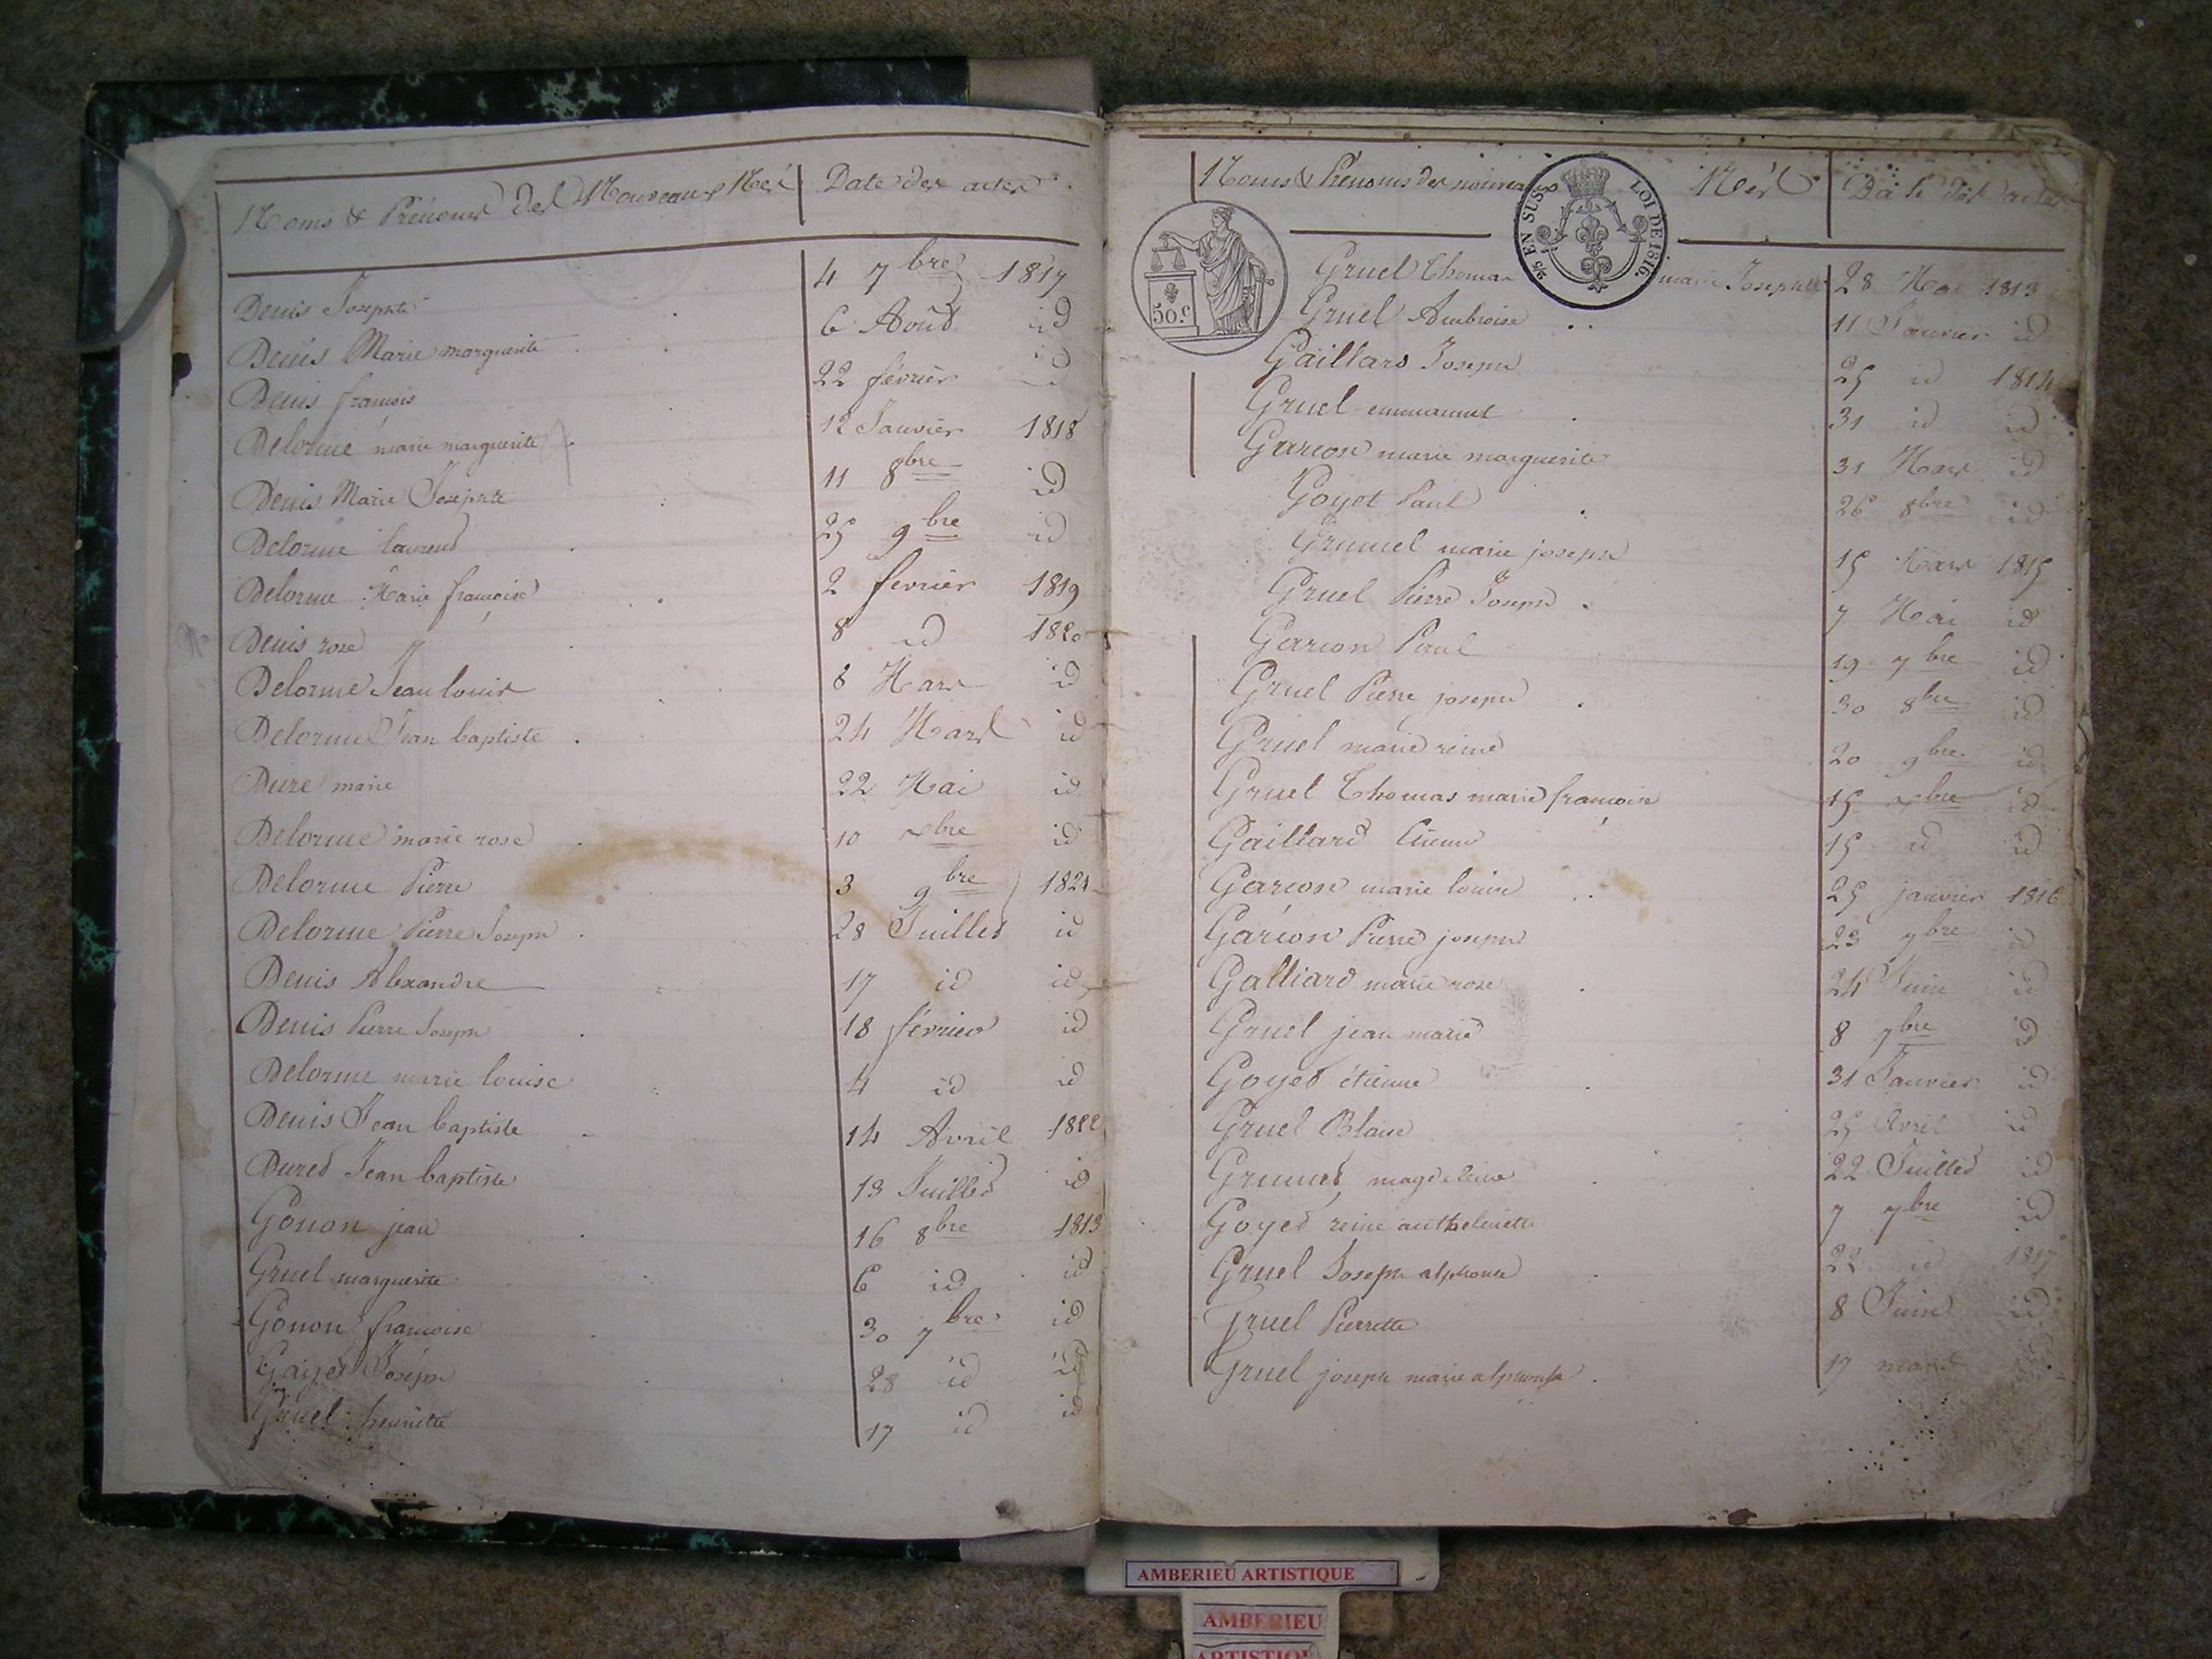 Noms & Prénoms des Nouveaux Nés Date des actes
Denis Josephte 4 7bre 1817
Denis Marie marguerite 6 Août id
Denis françois 22 février id
Delorme marie marguerite 12 Janvier 1818
Denis Marie Josephte 11 8bre id
Delorme laurend 25 9bre id
Delorme Marie françoise 2 fevrier 1819
Denis rose 8 id 1820
Delorme Jean louis 8 Mars id
Delorme Jean baptiste 24 Mars id
Dure marie 22 Mai id
Delorme marie rose 10 xbre id
Delorme Pierre 3 9bre 1821
Delorme Pierre Joseph 28 Juilled id
Denis Alexandre 17 id id
Denis Pierre Joseph 18 février id
Delorme marie louise 4 id id
Denis Jean baptiste 14 Avril 1822
Dured Jean baptiste 13 Juilled id
Gonon jean 16 8bre 1813
Gruel marguerite 6 id id
Gonon françoise 30 7bre id
Goyet Joseph 28 id id
Gruel henriette 17 id id
Noms & Prénoms des nouveaux Nés Date des actes
EN SUS LOI DE 1816.
50.c
Gruel Thomas marie Josephte 28 Mai 1813
Gruel Ambroise 11 Janvier id
Gaillard Joseph 25 id 1814
Gruel emmanuel 31 id id
Garçon marie marguerite 31 Mars id
Goyet Paul 26 8bre id
Grumel marie joseph 15 Mars 1815
Gruel Pierre Joseph 7 Mai id
Garçon Paul 19 7bre id
Gruel Pierre joseph 30 8bre id
Gruel marie reine 20 9bre id
Gruel Thomas marie françoise 15 xbre id
Gaillard Etienne 15 id id
Garçon marie louise 25 janvier 1816
Garçon Pierre joseph 23 7bre id
Galliard marie rose 24 Juin id
Gruel jean marie 8 7bre id
Goyed étienne 31 Janvier id
Gruel Blaise 25 Avril id
Grumel magdeleine 22 Juilled id
Goyed reine anthelmette 7 7bre id
Gruel Joseph alphonse 22 id 1817
Gruel Pierrette 8 Juin id
Gruel joseph marie alphonse 17 mars
AMBERIEU ARTISTIQUE
AMBERIEU
ARTISTIQUE